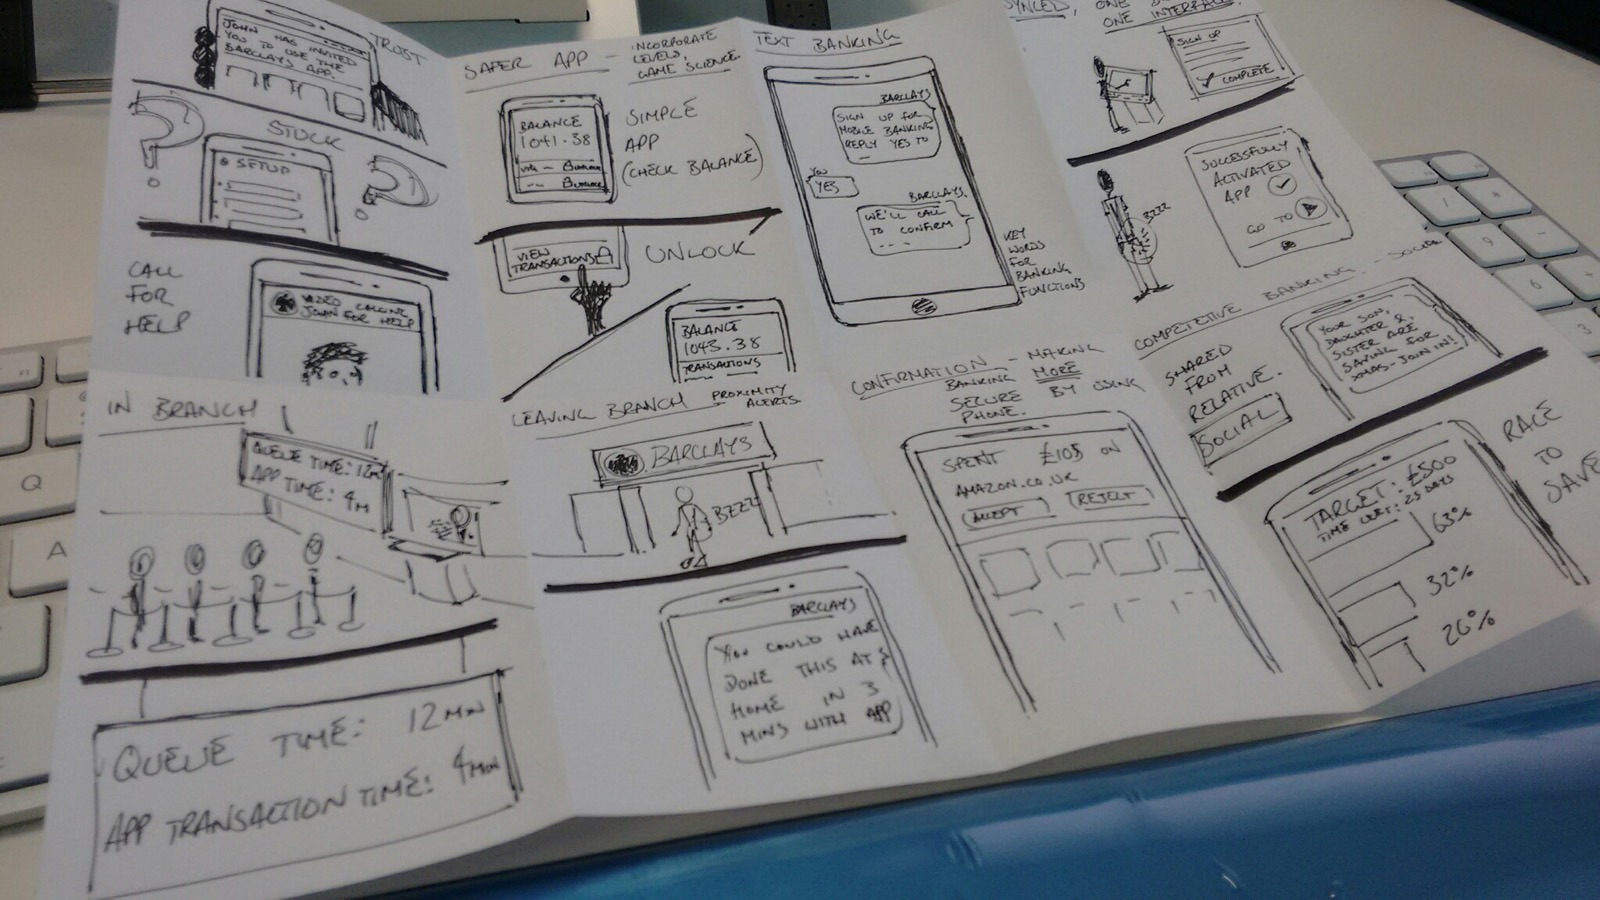 JOHN HAS INVITED
YOU TO USE THE
BARCLAYS APP.
TRUST
STUCK
SETUP
CALL
FOR
HELP
VIDEO CALLING
JOHN FOR HELP
SAFER APP - INCORPORATE
LEVELS,
GAME SCIENCE
BALANCE
1041.38
SIMPLE
APP
(CHECK BALANCE)
VIEW
TRANSACTIONS
UNLOCK
BALANCE
1043.38
TRANSACTIONS
TEXT BANKING
BARCLAYS
SIGN UP FOR
MOBILE BANKING
REPLY YES TO
YOU
YES
BARCLAYS.
WE'LL CALL
TO CONFIRM
KEY
WORDS
FOR
BANKING
FUNCTIONS
SYNCED, ONE
ONE INTERFACE.
SIGN UP
COMPLETE
SUCCESSFULLY
ACTIVATED
APP
GO TO
BZZZ
IN BRANCH
QUEUE TIME: 12M
APP TIME: 4M
QUEUE TIME: 12MIN
APP TRANSACTION TIME: 4MIN
LEAVING BRANCH PROXIMITY
ALERTS
BARCLAYS
BZZZ
BARCLAYS
YOU COULD HAVE
DONE THIS AT
HOME IN 3
MINS WITH APP
CONFIRMATION - MAKING
BANKING MORE
SECURE BY USING
PHONE.
SPENT £105 ON
AMAZON.CO.UK
ACCEPT REJECT
COMPETETIVE BANKING - SOCIAL
SHARED
FROM
RELATIVE.
SOCIAL
YOUR SON,
DAUGHTER &
SISTER ARE
SAVING FOR
XMAS - JOIN IN!
RACE
TO
SAVE
TARGET: £500
TIME LEFT: 25 DAYS
63%
32%
26%